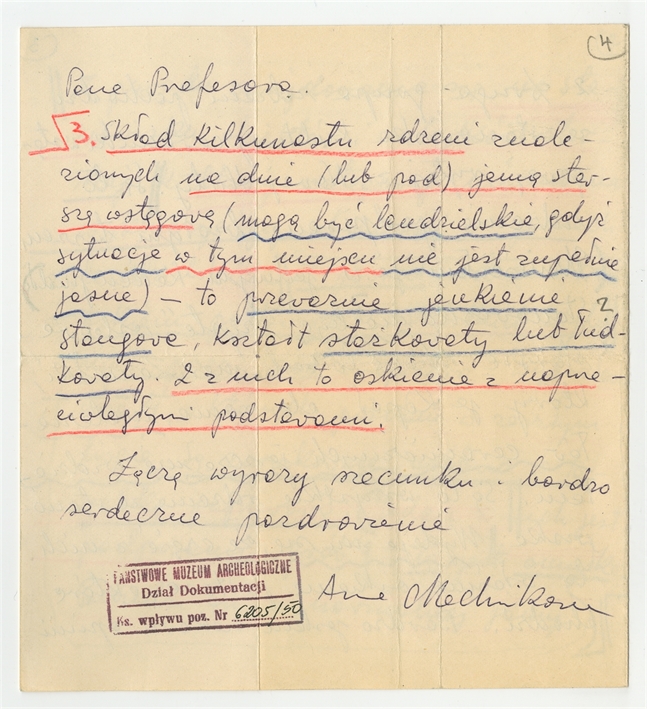 4
Pana Profesora.
3. Skład kilkunastu rdzeni znale-
zionych na dnie (lub pod) jamą star-
szą wstęgową (mogą być lendzielskie, gdyż
sytuacja w tym miejscu nie jest zupełnie
jasna) – to przeważnie jenkienie ?
stangove, kształt stożkowaty lub łud-
kovaty. 2 z nich to oskienie z naprze-
ciwległymi podstawami.
Łączę wyrazy szacunku i bardzo
serdeczne pozdrowienia
PAŃSTWOWE MUZEUM ARCHEOLOGICZNE
Dział Dokumentacji
Ks. wpływu poz. Nr 6205/50